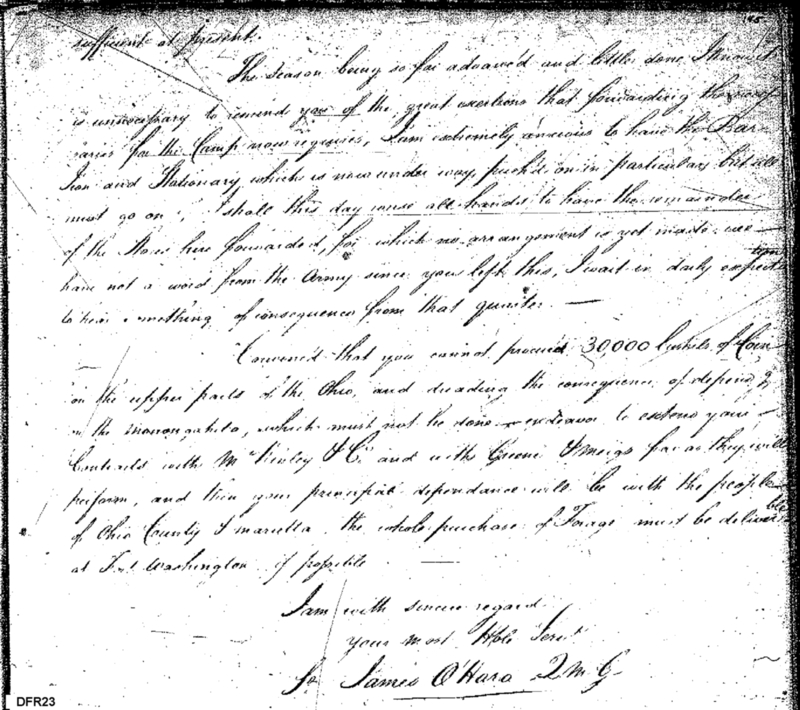 145
sufficient at present.
The Season being so far advanced and little done I know it
is unnecessary to remind you of the great exertions that forwarding the
for the Camp now requires, I am extremely anxious to have the Bar
Iron and Stationary, which is now under way, push'd on in particular, but all
must go on. I shall this day cause all hands to have the remainder
of the Stores here forwarded, for which no arrangement is yet made. we
have not a word from the Army since you left this, I wait in daily expectation
to hear something of consequence from that quarter. —
Convinced that you cannot procure 30,000 bushels of Corn
on the upper parts of the Ohio, and dreading the consequence of depend'g
on the Monongahela, which must not be done — endeavor to extend your
Contracts with Mc Kinley & Co. and with Greene & Meigs far as they will
perform, and then your principal dependance will be with the people
of Ohio County & Marietta. the whole purchase of Forage must be deliverable
at Fort Washington if possible —
I am with sincere regard
your most Hble Servt
James O'Hara Q M G
DFR23